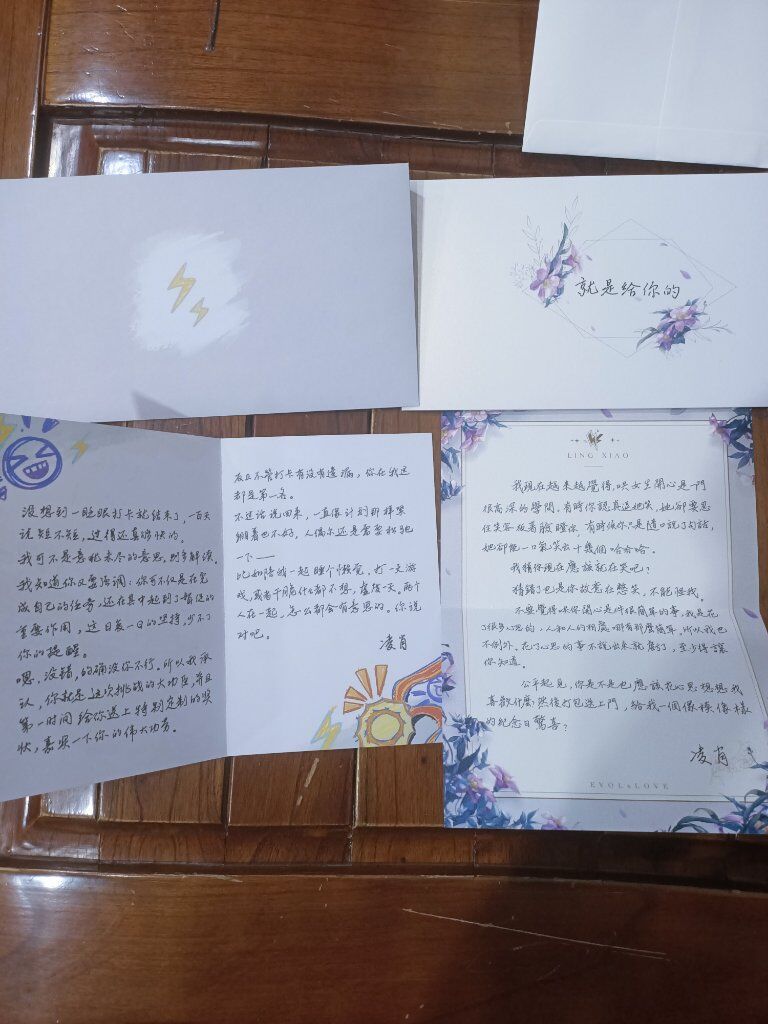 就是给你的
没想到一眨眼打卡就结束了，一百天
说短不短，过得还真够快的。
我可不是意犹未尽的意思，别多解读。
我知道你又要强调：你有不仅是在完
成自己的任务，还在其中起到了督促的
重要作用，这日复一日的坚持，少不了
你的提醒。
嗯，没错，的确没你不行。所以我承
认，你就是这次挑战的大功臣，并且
第一时间给你送上特别定制的奖
状，嘉奖一下你的伟大功劳。
而且不管打卡有没有遗漏，你在我这
都是第一名。
不过话说回来，一直跟计划那样紧
绷着也不好，人偶尔还是需要松弛
一下——
比如陪我一起睡个懒觉，打一天游
戏，或者干脆什么都不想，虚度一天。两个
人在一起，怎么都会有意思的。你说
对吧。
凌肖
LING XIAO
我現在越來越覺得哄女生開心是一門
很高深的學問，有時你認真逗她笑，她卻要忍
住笑容板着臉瞪你，有時候你只是隨口說了句話，
她卻能一口氣笑出十幾個哈哈哈。
我猜你現在應該就在笑吧？
猜錯了也是你故意在憋笑，不能怪我。
不要覺得哄你開心是件很簡單的事，我是花
了很多心思的，人和人的相處哪有那麼簡單，所以我也
不例外。花了心思的事不說出來就虧了，至少得讓
你知道。
公平起見，你是不是也應該花心思想想我
喜歡什麼，然後打包送上門，給我一個像模像樣
的紀念日驚喜？
凌肖
EVOL×LOVE